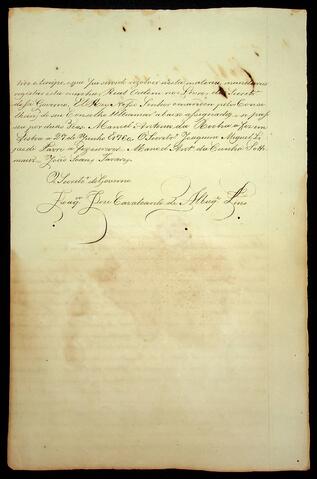 tivo e tempo, que fôr servido resolver nesta materia, mandareis
registar esta minha Real Ordem nos Livros da Secret.ª
desse Governo. El Rey Nosso Senhor o mandou pelo Conse-
lheiro do seu Conselho Ultramar. abaixo assignado, e se passou
por duas vias. Manoel Antonio da Rocha a fez em
Lisboa a 27 de Junho de 1760. O Secretr.º Joaquim Miguel Lo-
pes de Lavre a fez escrever. Manoel Ant.º da Cunha Sotto
maior João Soares Tavares
O Secret.º do Governo
Joaq.m Jose Cavalcante de Albuq.e Lins